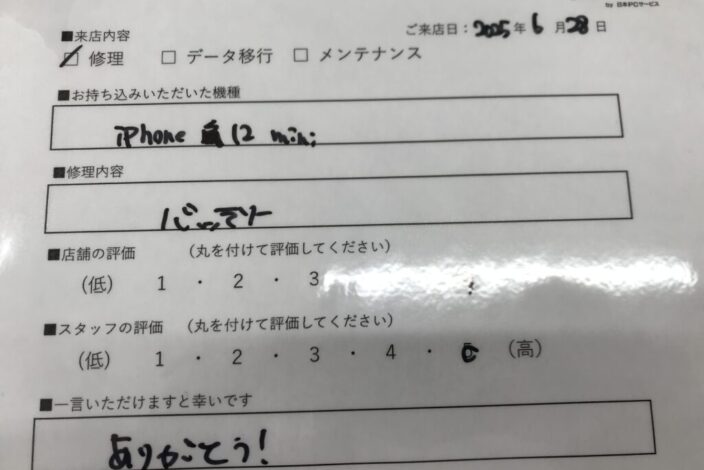 by 日本PCサービス
■来店内容
ご来店日：2025年6月28日
修理 □ データ移行 □ メンテナンス
■お持ち込みいただいた機種
iPhone 12 mini
■修理内容
バッテリー
■店舗の評価 （丸を付けて評価してください）
（低） 1 ・ 2 ・ 3
■スタッフの評価 （丸を付けて評価してください）
（低） 1 ・ 2 ・ 3 ・ 4 ・ 5 （高）
■一言いただけますと幸いです
ありがとう！